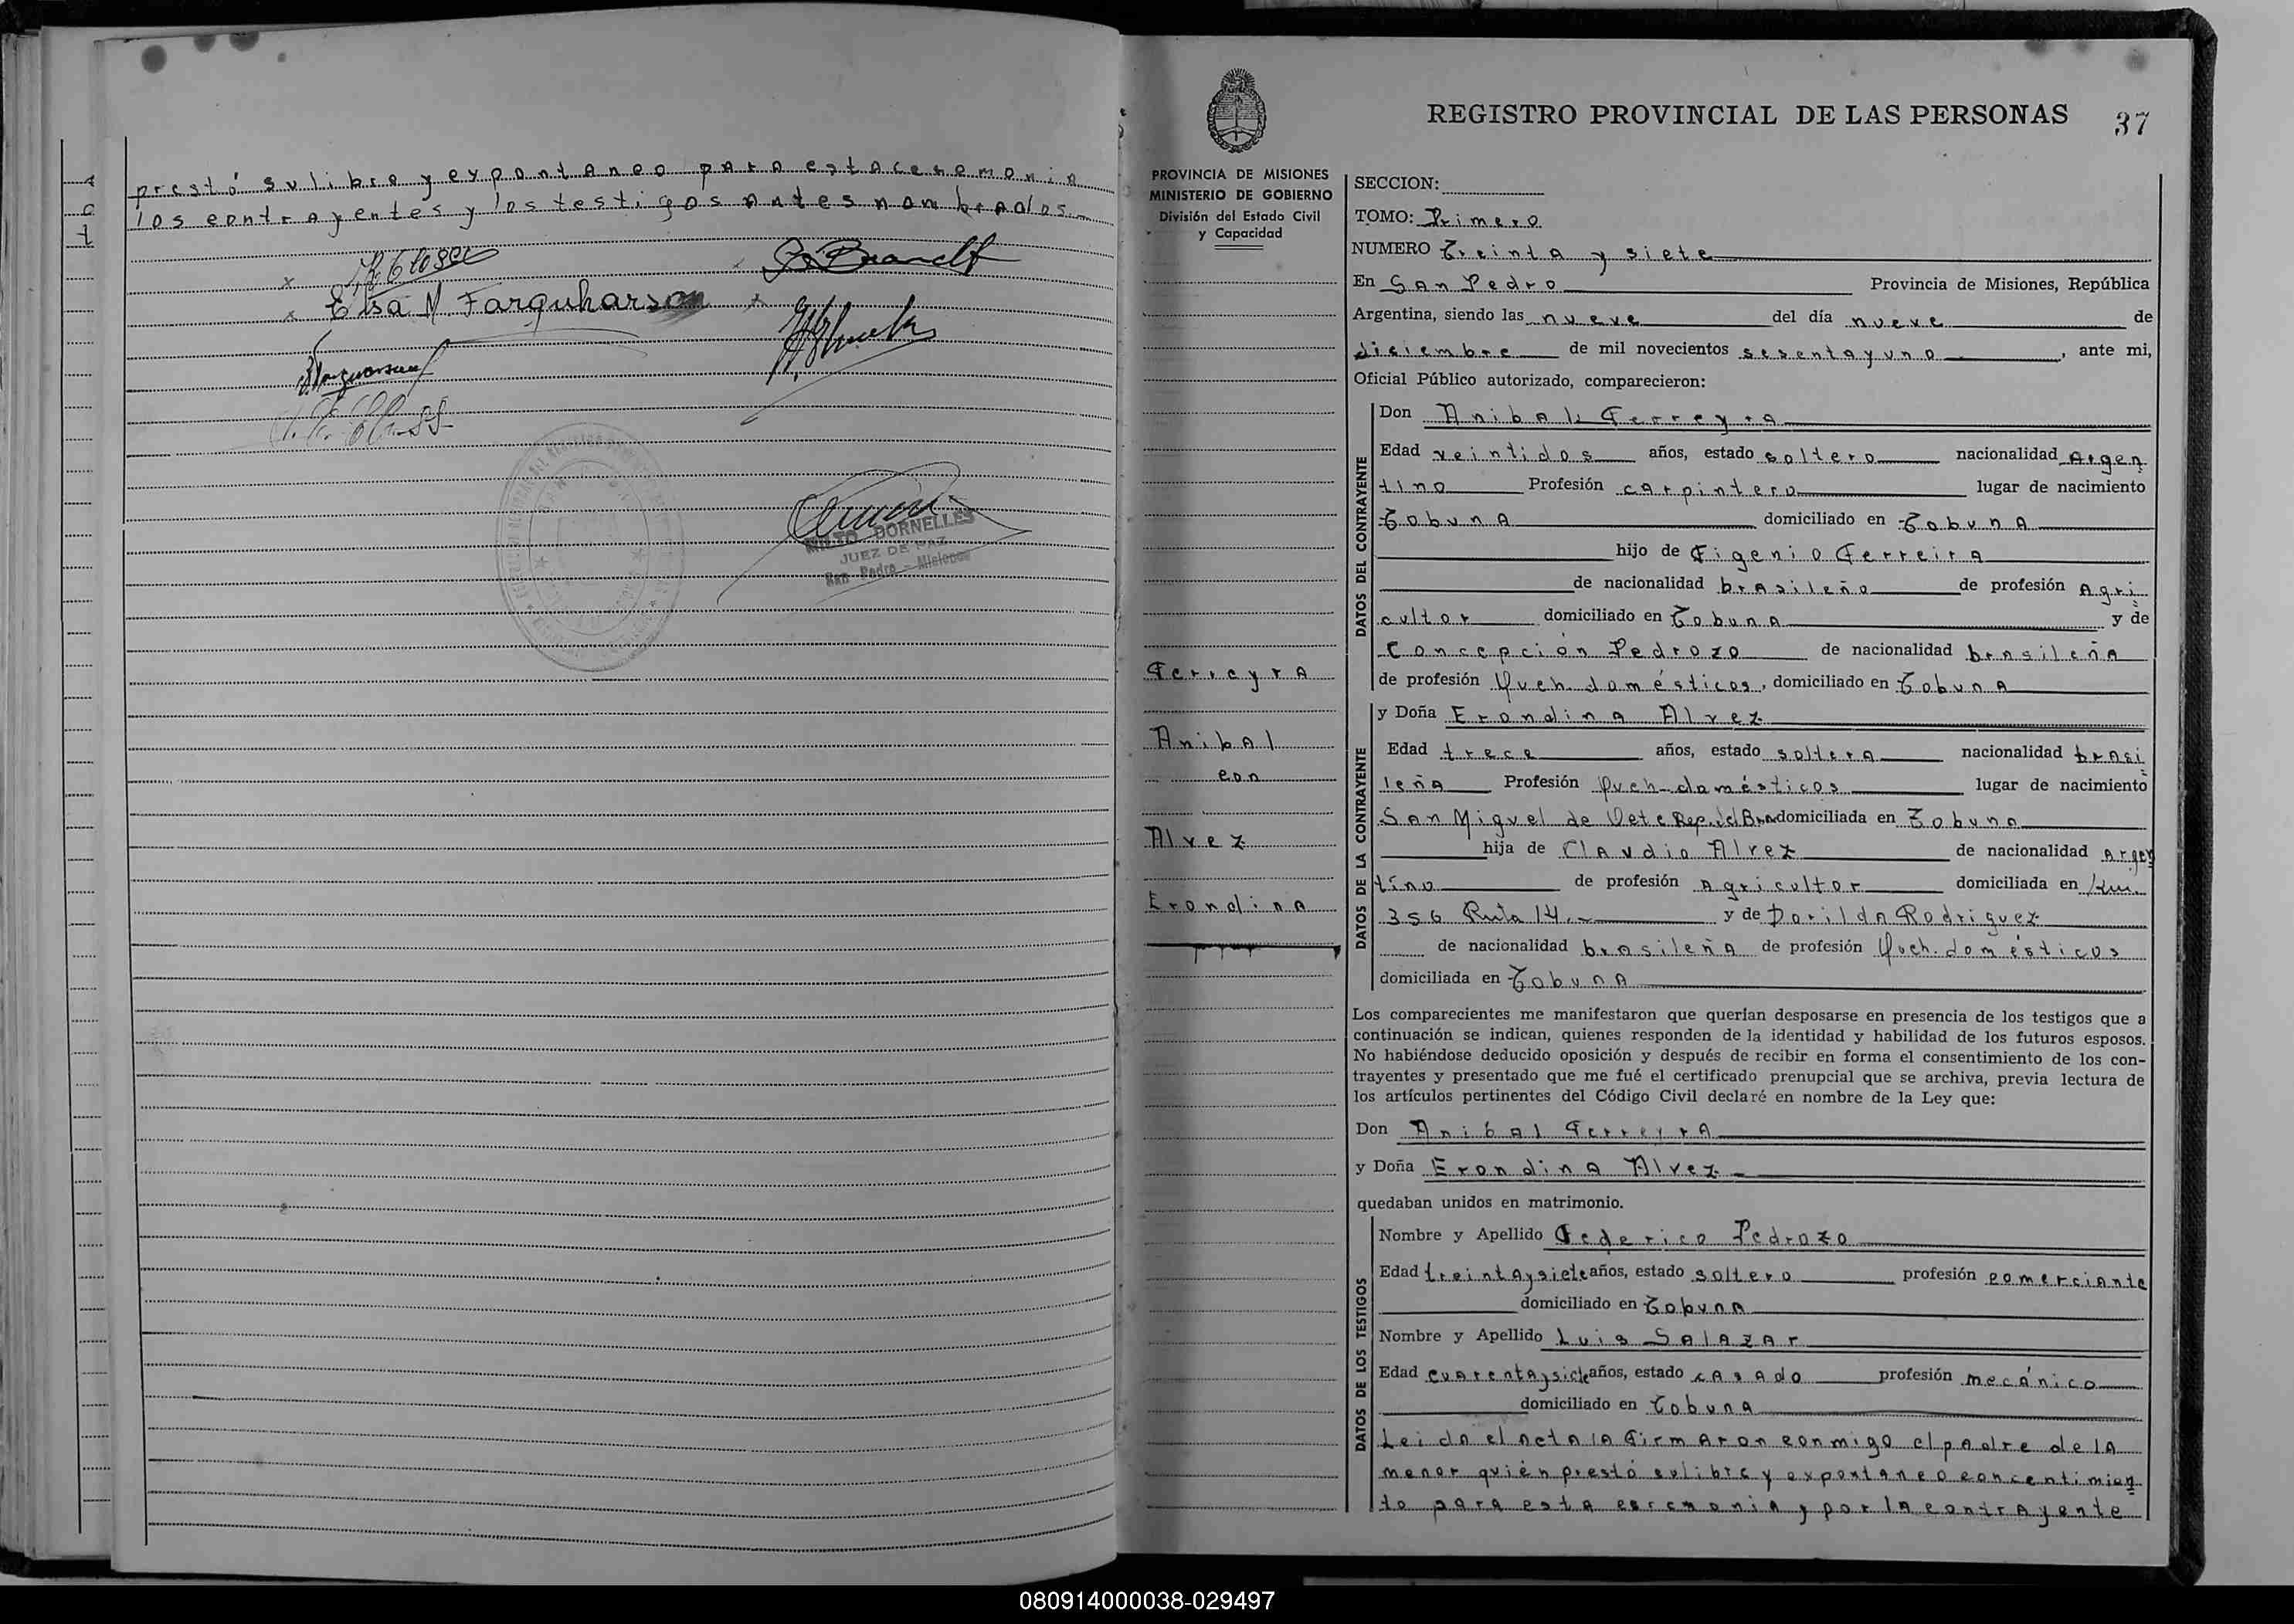 prestó su libre y expontaneo para esta ceremonia
los contrayentes y los testigos antes nombrados.
Elsa M Farquharson
G. Brandt
MILTO DORNELLES
JUEZ DE PAZ
San Pedro - Misiones
REGISTRO PROVINCIAL DE LAS PERSONAS 37
PROVINCIA DE MISIONES
MINISTERIO DE GOBIERNO
División del Estado Civil
y Capacidad
Ferreyra
Anibal
con
Alvez
Erondina
SECCION:
TOMO: Primero
NUMERO Treinta y siete
En San Pedro Provincia de Misiones, República
Argentina, siendo las nueve del día nueve de
diciembre de mil novecientos sesenta y uno, ante mi,
Oficial Público autorizado, comparecieron:
DATOS DEL CONTRAYENTE
Don Anibal Ferreyra
Edad veintidos años, estado soltero nacionalidad Argen
tino Profesión carpintero lugar de nacimiento
Tobuna domiciliado en Tobuna
hijo de Figenio Ferreira
de nacionalidad brasileño de profesión Agri
cultor domiciliado en Tobuna y de
Concepción Pedrozo de nacionalidad brasileña
de profesión Queh. domésticos, domiciliado en Tobuna
DATOS DE LA CONTRAYENTE
y Doña Erondina Alvez
Edad trece años, estado soltera nacionalidad brasi
leña Profesión Queh-domésticos lugar de nacimiento
San Miguel de Oete Rep. del Bra domiciliada en Tobuna
hija de Claudio Alvez de nacionalidad Argen
tino de profesión Agricultor domiciliada en Km.
356 Ruta 14.- y de Dorilda Rodriguez
de nacionalidad brasileña de profesión Queh. domésticos
domiciliada en Tobuna
Los comparecientes me manifestaron que querían desposarse en presencia de los testigos que a
continuación se indican, quienes responden de la identidad y habilidad de los futuros esposos.
No habiéndose deducido oposición y después de recibir en forma el consentimiento de los con-
trayentes y presentado que me fué el certificado prenupcial que se archiva, previa lectura de
los artículos pertinentes del Código Civil declaré en nombre de la Ley que:
Don Anibal Ferreyra
y Doña Erondina Alvez
quedaban unidos en matrimonio.
DATOS DE LOS TESTIGOS
Nombre y Apellido Federico Pedrozo
Edad treinta y siete años, estado soltero profesión comerciante
domiciliado en Tobuna
Nombre y Apellido Luis Salazar
Edad cuarenta y siete años, estado casado profesión mecánico
domiciliado en Tobuna
Leida el acta la firmaron conmigo el padre de la
menor quién prestó su libre y expontaneo concentimien
to para esta ceremonia y por la contrayente
080914000038-029497